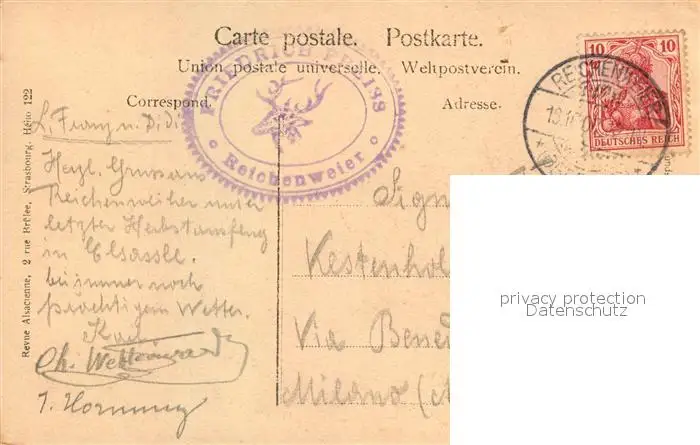 Carte postale. Postkarte.
Union postale universelle. Weltpostverein.
Correspond.
Adresse.
FRIEDRICH
Reichenweier
10 10
DEUTSCHES REICH
REICHENWEIER
Revue Alsacienne, 2 rue Brûlée, Strasbourg. Hélio 122
L. Franz u. Didi
Herzl. Gruss aus
Reichenweiher unter
letzter Herbstanfang
in Elsassle.
bei immer noch
prächtigem Wetter.
Karl
Ch.
J. Hornung
Sign
Kestenhol
Via Bened
Milano
privacy protection
Datenschutz